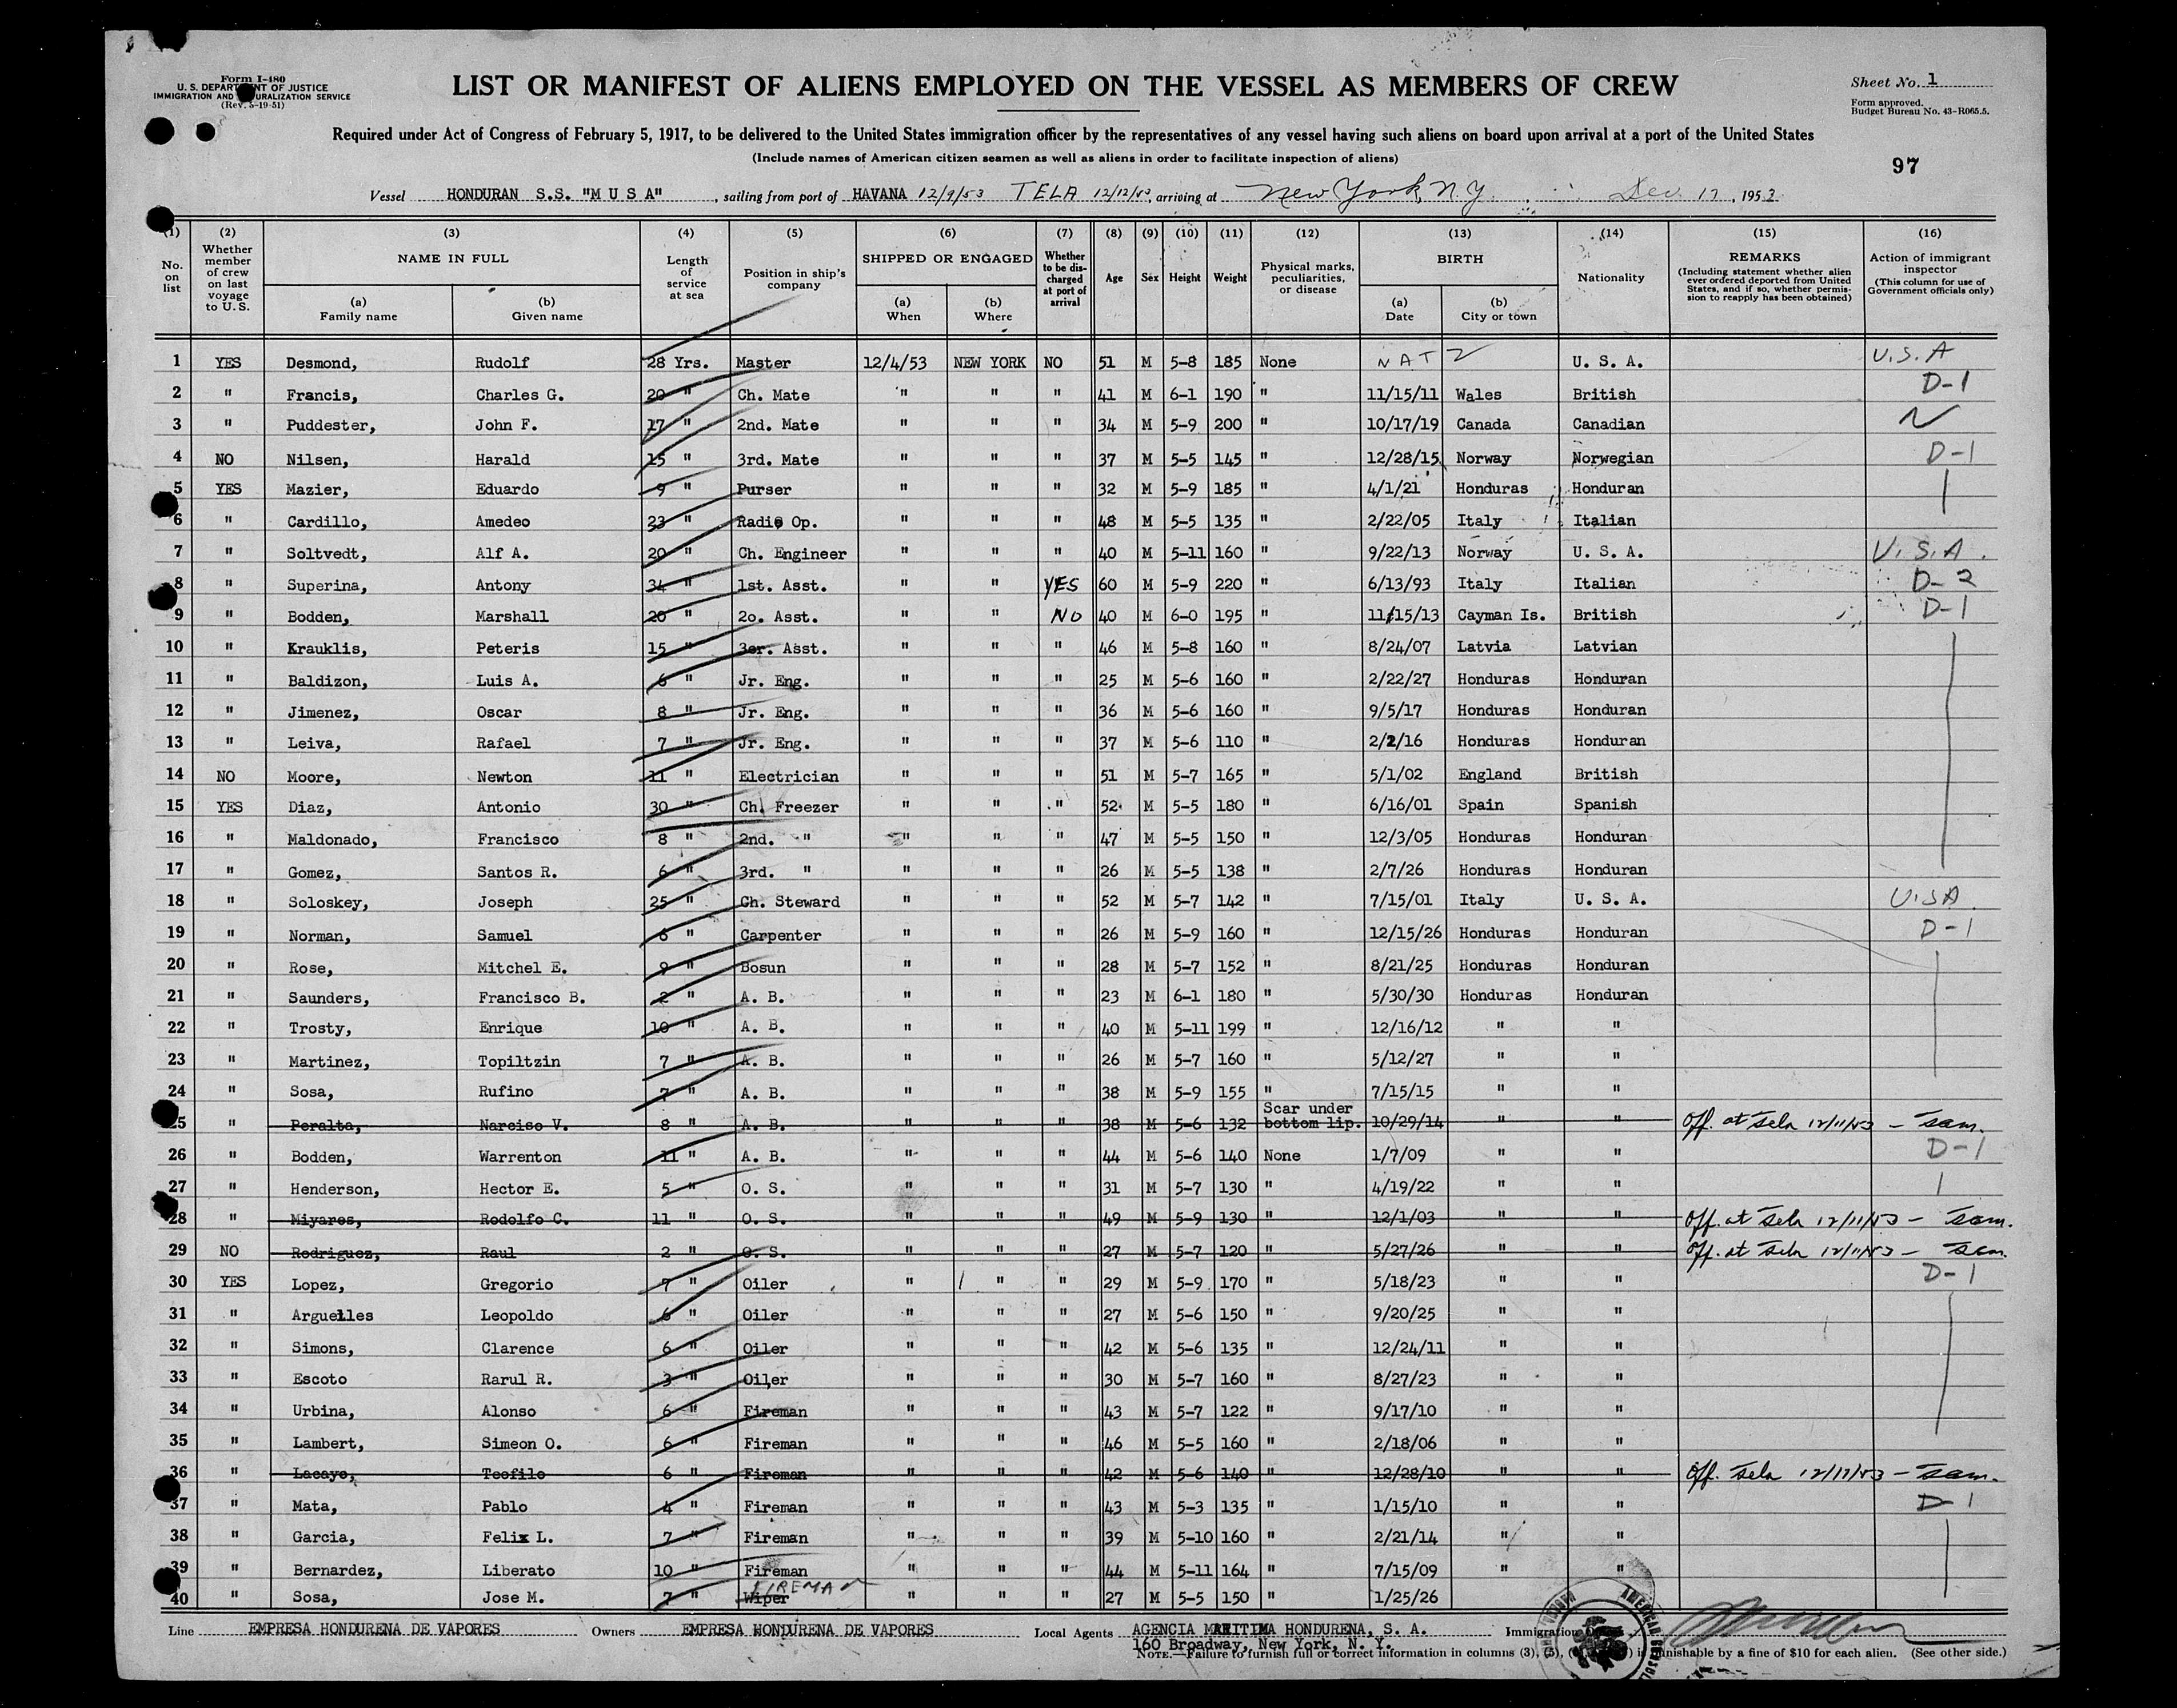 Form I-480
U. S. DEPARTMENT OF JUSTICE
IMMIGRATION AND NATURALIZATION SERVICE
(Rev. 5-19-51)
LIST OR MANIFEST OF ALIENS EMPLOYED ON THE VESSEL AS MEMBERS OF CREW
Sheet No. 1
Form approved.
Budget Bureau No. 43-R065.5.
Required under Act of Congress of February 5, 1917, to be delivered to the United States immigration officer by the representatives of any vessel having such aliens on board upon arrival at a port of the United States
(Include names of American citizen seamen as well as aliens in order to facilitate inspection of aliens)
97
Vessel HONDURAN S.S. "M U S A", sailing from port of HAVANA 12/9/53 TELA 12/12/53, arriving at New York, N.Y. Dec 17, 1953
(1) No. on list
(2) Whether member of crew on last voyage to U. S.
(3) NAME IN FULL (a) Family name (b) Given name
(4) Length of service at sea
(5) Position in ship's company
(6) SHIPPED OR ENGAGED (a) When (b) Where
(7) Whether to be discharged at port of arrival
(8) Age
(9) Sex
(10) Height
(11) Weight
(12) Physical marks, peculiarities, or disease
(13) BIRTH (a) Date (b) City or town
(14) Nationality
(15) REMARKS (Including statement whether alien ever ordered deported from United States, and if so, whether permission to reapply has been obtained)
(16) Action of immigrant inspector (This column for use of Government officials only)
1 YES Desmond, Rudolf 28 Yrs. Master 12/4/53 NEW YORK NO 51 M 5-8 185 None NATZ U. S. A. U.S.A
2 " Francis, Charles G. 20 " Ch. Mate " " " 41 M 6-1 190 " 11/15/11 Wales British D-1
3 " Puddester, John F. 17 " 2nd. Mate " " " 34 M 5-9 200 " 10/17/19 Canada Canadian
4 NO Nilsen, Harald 15 " 3rd. Mate " " " 37 M 5-5 145 " 12/28/15 Norway Norwegian D-1
5 YES Mazier, Eduardo 9 " Purser " " " 32 M 5-9 185 " 4/1/21 Honduras Honduran
6 " Cardillo, Amedeo 23 " Radio Op. " " " 48 M 5-5 135 " 2/22/05 Italy Italian
7 " Soltvedt, Alf A. 20 " Ch. Engineer " " " 40 M 5-11 160 " 9/22/13 Norway U. S. A. U.S.A.
8 " Superina, Antony 34 " 1st. Asst. " " YES 60 M 5-9 220 " 6/13/93 Italy Italian D-2
9 " Bodden, Marshall 20 " 2o. Asst. " " NO 40 M 6-0 195 " 11/15/13 Cayman Is. British D-1
10 " Krauklis, Peteris 15 " 3er. Asst. " " " 46 M 5-8 160 " 8/24/07 Latvia Latvian
11 " Baldizon, Luis A. 6 " Jr. Eng. " " " 25 M 5-6 160 " 2/22/27 Honduras Honduran
12 " Jimenez, Oscar 8 " Jr. Eng. " " " 36 M 5-6 160 " 9/5/17 Honduras Honduran
13 " Leiva, Rafael 7 " Jr. Eng. " " " 37 M 5-6 110 " 2/2/16 Honduras Honduran
14 NO Moore, Newton 11 " Electrician " " " 51 M 5-7 165 " 5/1/02 England British
15 YES Diaz, Antonio 30 " Ch. Freezer " " " 52 M 5-5 180 " 6/16/01 Spain Spanish
16 " Maldonado, Francisco 8 " 2nd. " " " " 47 M 5-5 150 " 12/3/05 Honduras Honduran
17 " Gomez, Santos R. 6 " 3rd. " " " " 26 M 5-5 138 " 2/7/26 Honduras Honduran
18 " Soloskey, Joseph 25 " Ch. Steward " " " 52 M 5-7 142 " 7/15/01 Italy U. S. A. U.S.A.
19 " Norman, Samuel 6 " Carpenter " " " 26 M 5-9 160 " 12/15/26 Honduras Honduran D-1
20 " Rose, Mitchel E. 9 " Bosun " " " 28 M 5-7 152 " 8/21/25 Honduras Honduran
21 " Saunders, Francisco B. 2 " A. B. " " " 23 M 6-1 180 " 5/30/30 Honduras Honduran
22 " Trosty, Enrique 10 " A. B. " " " 40 M 5-11 199 " 12/16/12 " "
23 " Martinez, Topiltzin 7 " A. B. " " " 26 M 5-7 160 " 5/12/27 " "
24 " Sosa, Rufino 7 " A. B. " " " 38 M 5-9 155 " 7/15/15 " "
25 " Peralta, Narciso V. 8 " A. B. " " " 38 M 5-6 132 Scar under bottom lip. 10/29/14 " " Off. at Tela 12/11/53 -
26 " Bodden, Warrenton 11 " A. B. " " " 44 M 5-6 140 None 1/7/09 " " D-1
27 " Henderson, Hector E. 5 " O. S. " " " 31 M 5-7 130 " 4/19/22 " "
28 " Miyares, Rodolfo C. 11 " O. S. " " " 49 M 5-9 130 " 12/1/03 " " Off. at Tela 12/11/53 -
29 NO Rodriguez, Raul 2 " O. S. " " " 27 M 5-7 120 " 5/27/26 " " Off. at Tela 12/11/53 -
30 YES Lopez, Gregorio 7 " Oiler " " " 29 M 5-9 170 " 5/18/23 " " D-1
31 " Arguelles Leopoldo 6 " Oiler " " " 27 M 5-6 150 " 9/20/25 " "
32 " Simons, Clarence 6 " Oiler " " " 42 M 5-6 135 " 12/24/11 " "
33 " Escoto Rarul R. 3 " Oiler " " " 30 M 5-7 160 " 8/27/23 " "
34 " Urbina, Alonso 6 " Fireman " " " 43 M 5-7 122 " 9/17/10 " "
35 " Lambert, Simeon O. 6 " Fireman " " " 46 M 5-5 160 " 2/18/06 " "
36 " Lacayo, Teofilo 6 " Fireman " " " 42 M 5-6 140 " 12/28/10 " " Off. Tela 12/11/53 -
37 " Mata, Pablo 4 " Fireman " " " 43 M 5-3 135 " 1/15/10 " " D-1
38 " Garcia, Felix L. 7 " Fireman " " " 39 M 5-10 160 " 2/21/14 " "
39 " Bernardez, Liberato 10 " Fireman " " " 44 M 5-11 164 " 7/15/09 " "
40 " Sosa, Jose M. 7 " Wiper FIREMAN " " " 27 M 5-5 150 " 1/25/26
Line EMPRESA HONDURENA DE VAPORES Owners EMPRESA HONDURENA DE VAPORES Local Agents AGENCIA MARITIMA HONDURENA, S. A. Immigration
160 Broadway, New York, N. Y.
NOTE.—Failure to furnish full or correct information in columns (3), (5), is punishable by a fine of $10 for each alien. (See other side.)